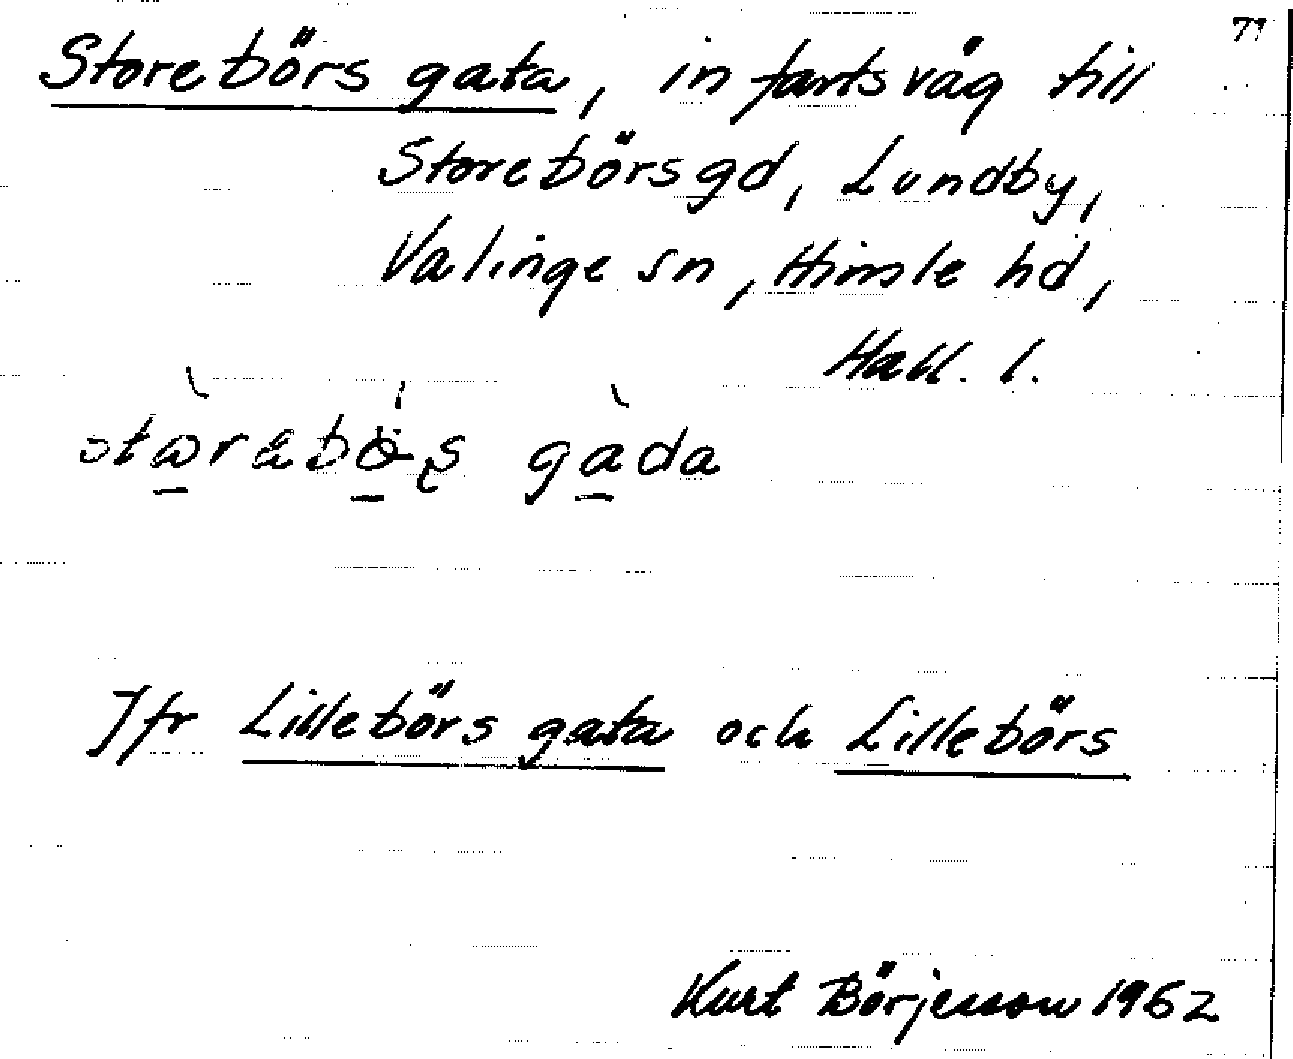 71
Storebörs gata, infartsväg till
Storebörs gd, Lundby,
Valinge sn, Himle hd,
Hall. l.
Jfr Lillebörs gata och Lillebörs
Kurt Börjesson 1962